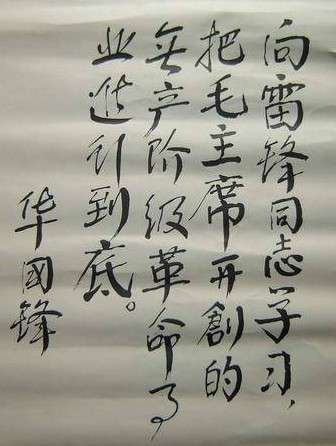 向雷锋同志学习，
把毛主席开創的
无产阶级革命事
业进行到底。
华國锋